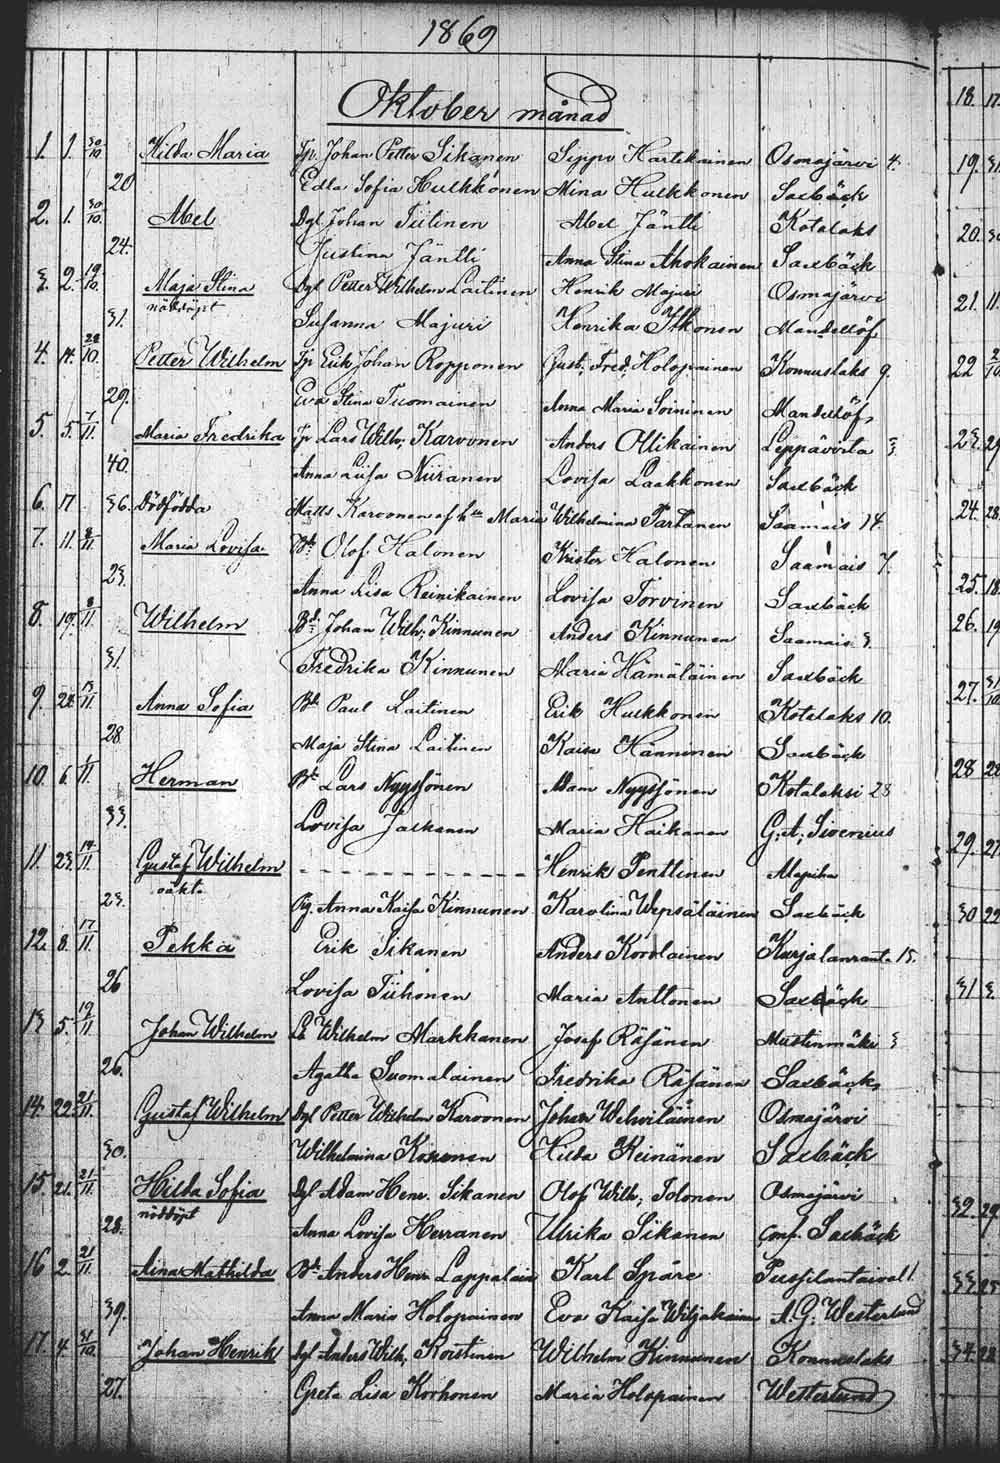 1869
Oktober månad
1. 1. 30/10. Hilda Maria Tp. Johan Petter Sikanen Seppo Hartikainen Osmajärvi 4.
20 Edla Sofia Hulkkonen Mina Hulkkonen Saxbäck
2. 1. 30/10. Abel Dgl Johan Tiitinen Abel Jäntti Kotalaks
24. Justina Jäntti Anna Stina Ahokainen Saxbäck
3. 2. 19/10. Maja Stina Dgl Petter Wilhelm Laitinen Henrik Majuri Osmajärvi
nöddöpt
31. Susanna Majuri Henrika Itkonen Mandellöf
4. 14. 28/10. Petter Wilhelm Tp Erik Johan Ropponen Gust. Fred. Holopainen Konnuslaks 9.
29. Eva Stina Tuomainen Anna Maria Soininen Mandellöf
5. 5. 7/11. Maria Fredrika Tp Lars Wilh; Karvonen Anders Ollikainen Leppävirta 3
40. Anna Luisa Niiranen Lovisa Laakkonen Saxbäck
6. 17 36. Dödfödda Matts Karvonen af h:u Maria Wilhelmina Partanen Saamais 14.
7. 11. 8/11 Maria Lovisa Bd Olof Halonen Krister Halonen Saamais 7.
23. Anna Lisa Reinikainen Lovisa Torvinen Saxbäck
8. 19. 8/11 Wilhelm Bd: Johan Wilh; Kinnunen Anders Kinnunen Saamais 3.
31. Fredrika Kinnunen Maria Hämäläinen Saxbäck
9. 28. 13/11. Anna Sofia Bd Paul Laitinen Erik Hulkkonen Kotalaks 10.
28. Maja Stina Laitinen Kaisa Hänninen Saxbäck
10. 6. /11. Herman Bd Lars Nyyssönen Adam Nyyssönen Kotalaksi 28
33. Lovisa Jalkanen Maria Haikanen G; A; Sivenius
11. 23. 14/11. Gustaf Wilhelm Henrik Penttinen
oäkta
23. Pig. Anna Kaisa Kinnunen Karolina Wepsäläinen Saxbäck
12. 8. 17/11. Pekka Erik Sikanen Anders Korolainen Kurjalanranta 15.
26 Lovisa Tiihonen Maria Anttonen Saxbäck
13 5. 19/11 Johan Wilhelm Wilhelm Markkanen Josef Räsänen Mustinmäki 3
26. Agatha Suomalainen Fredrika Räsänen Saxbäck
14. 22. 21/11. Gustaf Wilhelm Dgl Petter Wilhelm Karvonen Johan Wehviläinen Osmajärvi
30. Wilhelmina Kononen Hilda Reinänen Saxbäck
15. 21. 21/11. Hilda Sofia Dgl Adam Henr. Sikanen Olof Wilh; Tolonen Osmajärvi
nöddöpt
28. Anna Lovisa Herranen Ulrika Sikanen Conf. Saxbäck
16 2. 21/11. Aina Mathilda Bd Anders Henr Lappalain Karl Spåre
39. Anna Maria Holopainen Eva Kaisa Wiljakainen A. G; Westerlund
17. 4. 31/10. Johan Henrik Dgl Anders Wilh; Koistinen Wilhelm Kinnunen Konnuslaks
27. Greta Lisa Korhonen Maria Holopainen Westerlund
18. 17.
19. 31
20.
21. 11
22
23. 29
24. 28
25. 18
26. 19
27. 31/10
28 28
29. 27
30 22
31 3.
32. 29
33. 25
34. 28